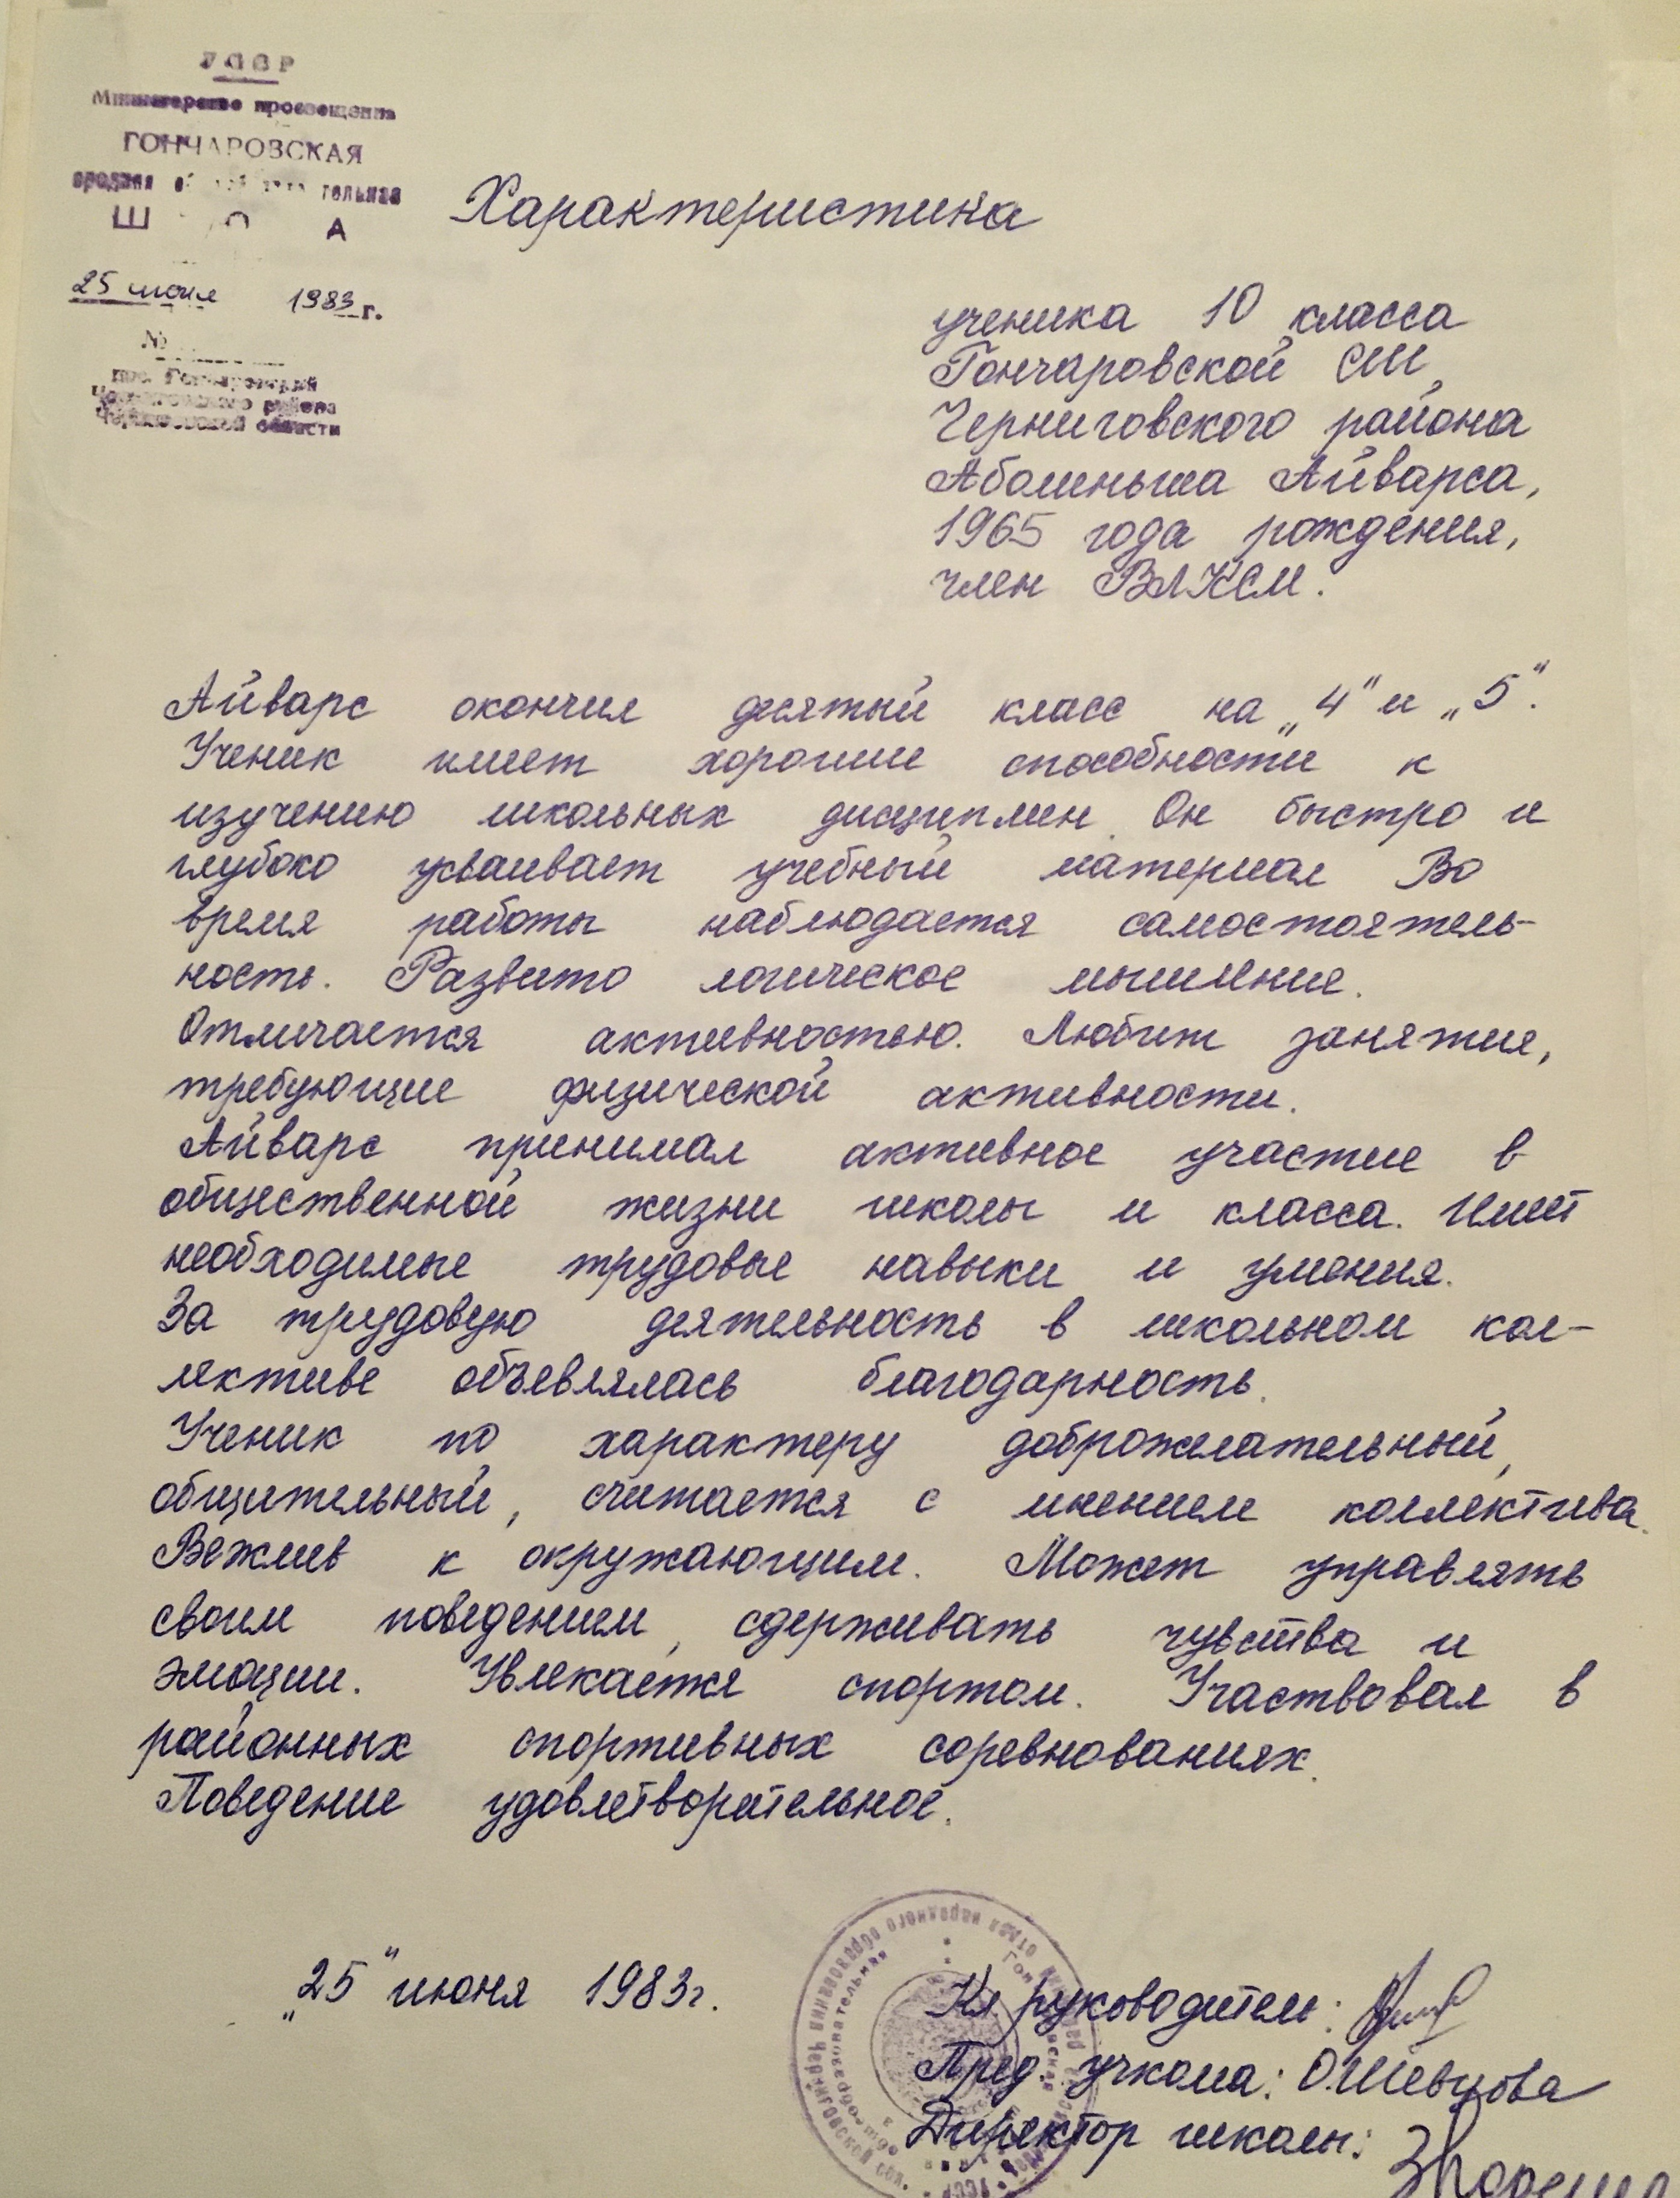 УССР
Министерство просвещения
ГОНЧАРОВСКАЯ
средняя
Ш О А
25 июня 1983 г.
№
пос. Гончаровский
Черниговского района
Черниговской области
Характеристика
ученика 10 класса
Гончаровской СШ,
Черниговского района
Аболиньша Айварса,
1965 года рождения,
член ВЛКСМ.
Айварс окончил десятый класс на „4" и „5".
Ученик имеет хорошие способности к
изучению школьных дисциплин. Он быстро и
глубоко усваивает учебный материал Во
время работы наблюдается самостоятель-
ность. Развито логическое мышление.
Отличается активностью. Любит занятия,
требующие физической активности.
Айварс принимал активное участие в
общественной жизни школы и класса. Имеет
необходимые трудовые навыки и умения.
За трудовую деятельность в школьном кол-
лективе объевлялась благодарность.
Ученик по характеру доброжелательный,
общительный, считается с мнением коллектива.
Вежлив к окружающим. Может управлять
своим поведением, сдерживать чувства и
эмоции. Увлекается спортом. Участвовал в
районных спортивных соревнованиях.
Поведение удовлетворительное.
„25" июня 1983г.
Кл руководитель:
Пред. учкома: О.Шевцова
Директор школы:
отдел народного образования